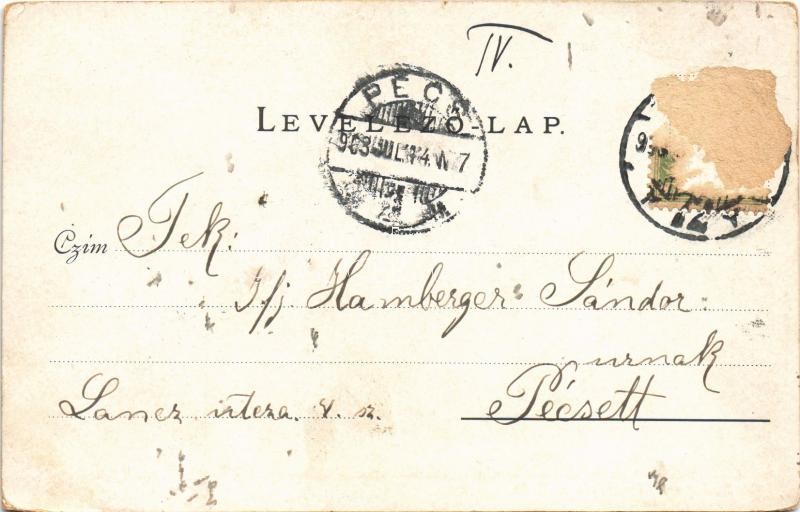 IV.
PÉCS
LEVELEZŐ-LAP.
903 JUL 14 N 7
Czim Tek:
Ifj Hamberger Sándor
urnak
Lancz utcza. 8. sz. Pécsett